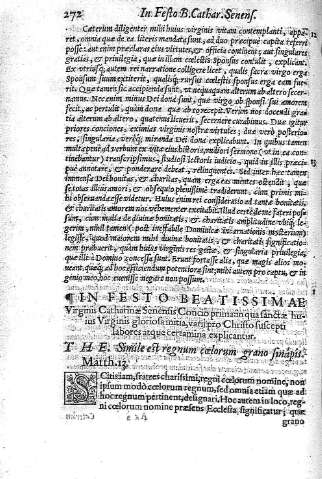 272 In Festo B. Cathar. Senens.
Cæterum diligenter mihi huius virginis vitam contemplanti, appa-
ret, omnia quæ de ea literis mandata sunt, ad duo præcipue capita referri
posse: aut enim præclaras eius virtutes, & officia continent; aut singulares
gratias, & privilegia, quæ in illam cœlestis Sponsus contulit, explicant.
Ex utrisque autem enarratione colligere licet, qualis sacra virgo erga
Sponsum suum extiterit, qualisque rursus cœlestis sponsus erga eam fue-
rit. Quæ tamen sic accipienda sunt, ut nequaquam alterum ab altero secer-
namus. Nec enim minus Dei donum est, quod virgo ab sponsi sui amorem
fecit, ac pertulit, quam donum quod ab eo recepit. Verum nos docendi gratia
alterum ab altero, secernere curabimus. Duæ igitur
priores conciones, eximias virginis nostræ virtutes; duæ verò posterio-
res, singularia, verèque miranda Dei dona explicabunt. In quibus tamen
multa penè ad verbum ex vitæ eius historia, mediocri sermone (ut in ea con-
tinebantur) transcripsimus, studiosi lectoris iudicio, quid in illis præcipuè
annotare, & ponderare debeat, relinquentes. Sed inter hæc tamen
immensa Dei bonitas, & charitas, quam erga eas mentes ostendit, quæ
se totas illius amori, & obsequio plenissimè tradiderunt, cum primis mi-
hi observanda esse videtur. Huius enim rei consideratio ad tantæ bonitatis,
& charitatis amorem nos vehementer excitabit. Illud certè de me fateri pos-
sum, cum multa de divina bonitate, & charitatis magnitudine ubique le-
gerim, nihil tamen (post ineffabile Dominicæ incarnationis mysterium)
legisse, quod maiorem mihi divinæ bonitatis, & charitatis significatio-
nem præbuerit, quàm huius virginis res gestæ, & singularia privilegia,
quæ illi à Domino concessa sunt. Erunt fortasse alia, quæ magis alios mo-
veant, quæque ad hoc efficiendum potentiora sint; mihi autem pro captu, & in-
genio meo, hoc evenisse negare non possum.
¶ IN FESTO BEATISSIMAE
Virginis Catharinæ Senensis Concio prima: in qua sanctæ hu-
ius Virginis gloriosa initia, varii pro Christo suscepti
labores atque certamina explicantur.
T H E. Simile est regnum cœlorum grano sinapis.
Matth. 13.
SCitis iam, fratres charissimi, regni cœlorum nomine, non
ipsum modò cœlorum regnum, sed omnia etiam quæ ad
hoc regnum pertinent, designari. Hoc autem in loco, reg-
ni cœlorum nomine præsens Ecclesia significatur; quæ
grano